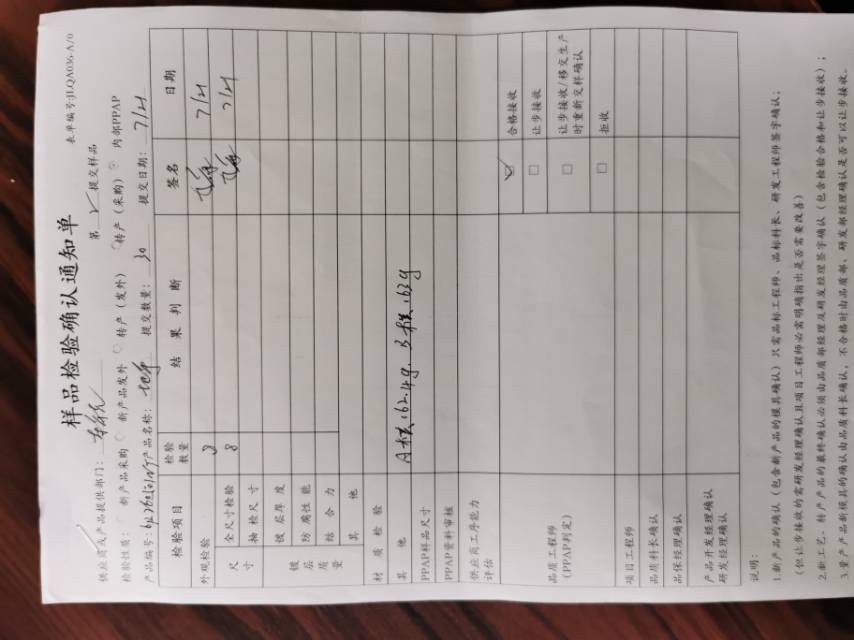 表单编号:JLQA036-A/0
样品检验确认通知单
供应商或产品提供部门: 第 提交样品
检验性质: 新产品采购 新产品发外 转产(发外) 转产(采购) 内部PPAP
产品编号: 产品名称: 提交数量: 30 提交日期: 7/21
检验项目 检验数量 结果判断 签名 日期
外观检验 8 7/21
尺寸 全尺寸检验 8 7/21
抽检尺寸
镀层质量 镀层厚度
防腐性能
结合力
其他
材质检验
其他 A模:162.4g. B模:162g
PPAP样品尺寸
PPAP资料审核
供应商工序能力评估
品质工程师(PPAP判定) ☑ 合格接收
□ 让步接收
□ 让步接收/移交生产时重新交样确认
□ 拒收
项目工程师
品质科长确认
品保经理确认
产品开发经理确认
研发经理确认
说明:
1.新产品的确认(包含新产品的模具确认)只需品标工程师、品标科长、研发工程师签字确认;
(但让步接收的需研发经理确认且项目工程师必需明确指出是否需要改善)
2.新工艺、转产产品的最终确认必须由品质部经理及研发经理签字确认(包含检验合格和让步接收);
3.量产产品新模具的确认由品质科长确认,不合格时由品质部、研发部经理确认是否可以让步接收。